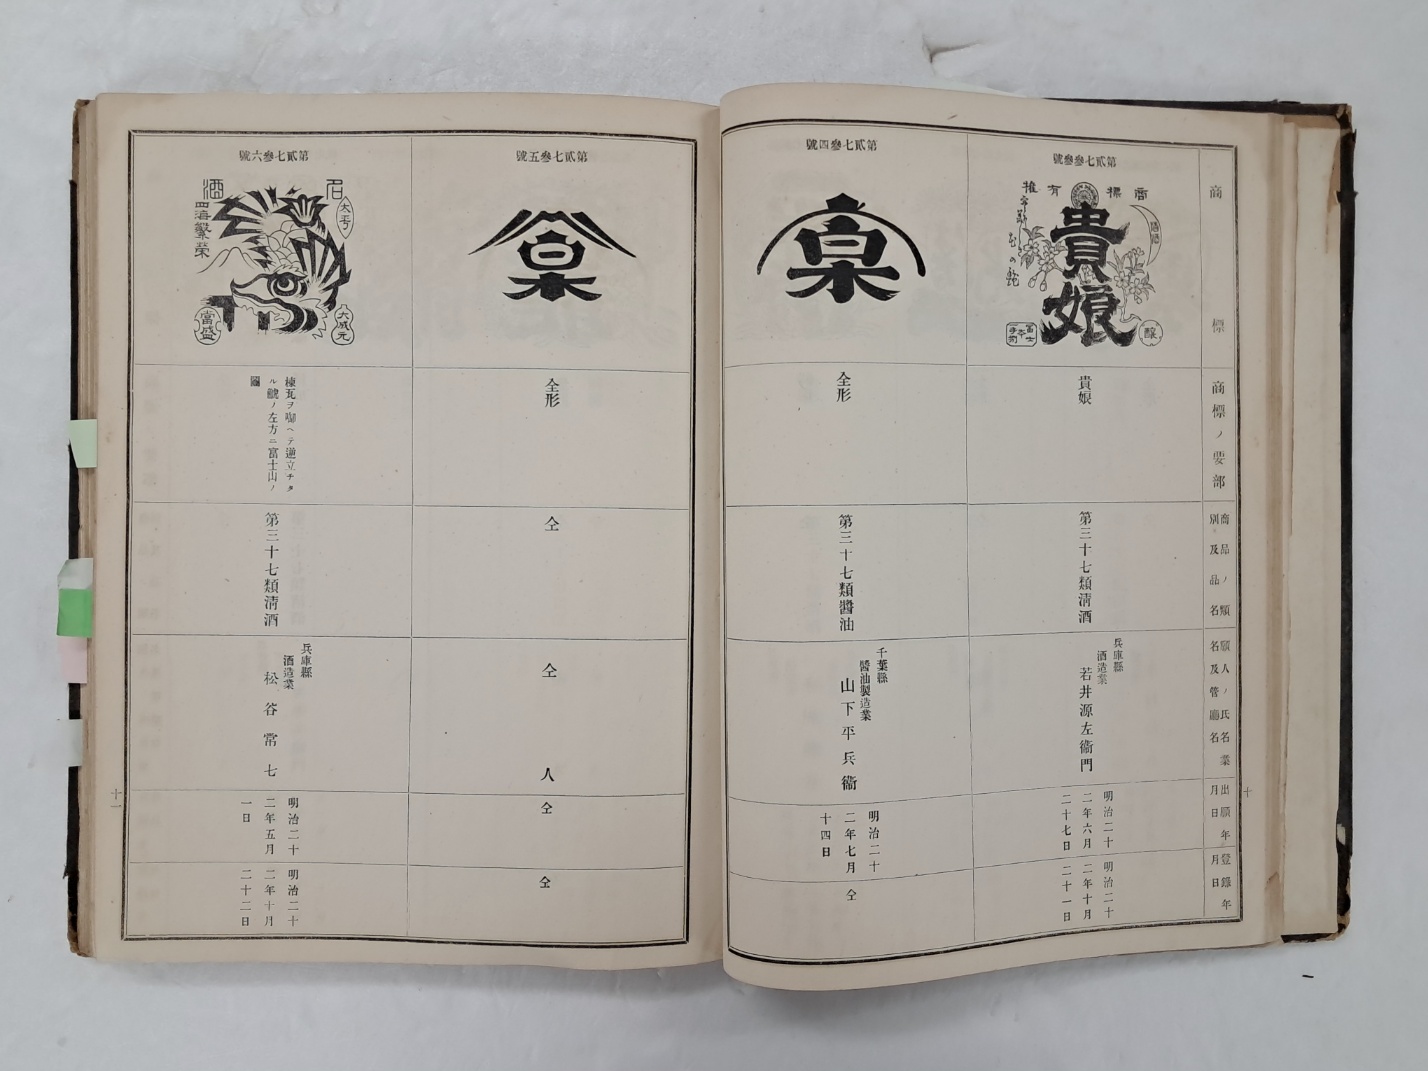 商標
商標ノ要部
商品ノ類
別及品名
願人ノ氏名業
名及管廳名
出願年
月日
登錄年
月日
十
第貳七參參號
商標有權
貴娘
釀
富士
貴娘
第三十七類淸酒
兵庫縣
酒造業
若井源左衞門
明治二十
二年六月
二十七日
明治二十
二年十月
二十一日
第貳七參四號
全形
第三十七類醬油
千葉縣
醬油製造業
山下平兵衞
明治二十
二年七月
十四日
仝
第貳七參五號
全形
仝
仝人
仝
仝
第貳七參六號
名酒
四海繁榮
大元
富盛
棟瓦ヲ啣ヘテ逆立チタ
ル鯱ノ左方ニ富士山ノ
圖
第三十七類淸酒
兵庫縣
酒造業
松谷常七
明治二十
二年五月
一日
明治二十
二年十月
二十二日
十一